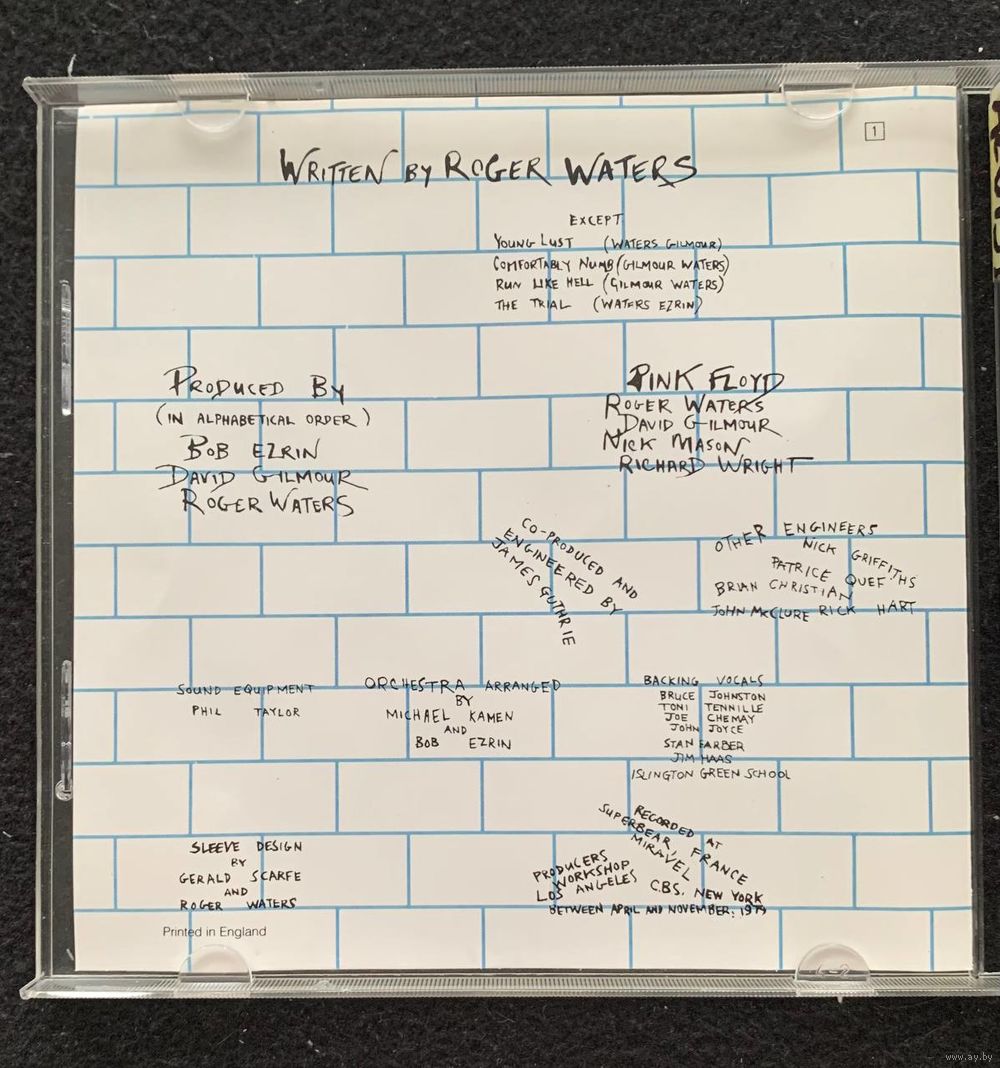 1
WRITTEN BY ROGER WATERS
EXCEPT
YOUNG LUST (WATERS GILMOUR)
COMFORTABLY NUMB (GILMOUR WATERS)
RUN LIKE HELL (GILMOUR WATERS)
THE TRIAL (WATERS EZRIN)
PRODUCED BY
(IN ALPHABETICAL ORDER)
BOB EZRIN
DAVID GILMOUR
ROGER WATERS
PINK FLOYD
ROGER WATERS
DAVID GILMOUR
NICK MASON
RICHARD WRIGHT
CO-PRODUCED AND
ENGINEERED BY
JAMES GUTHRIE
OTHER ENGINEERS
NICK GRIFFITHS
PATRICE QUEF
BRIAN CHRISTIAN
JOHN McCLURE RICK HART
SOUND EQUIPMENT
PHIL TAYLOR
ORCHESTRA ARRANGED
BY
MICHAEL KAMEN
AND
BOB EZRIN
BACKING VOCALS
BRUCE JOHNSTON
TONI TENNILLE
JOE CHEMAY
JOHN JOYCE
STAN FARBER
JIM HAAS
ISLINGTON GREEN SCHOOL
SLEEVE DESIGN
BY
GERALD SCARFE
AND
ROGER WATERS
RECORDED AT
SUPERBEAR, FRANCE
MIRAVEL
PRODUCERS
WORKSHOP
LOS ANGELES
C.B.S. NEW YORK
BETWEEN APRIL AND NOVEMBER: 1979
Printed in England
www.ay.by